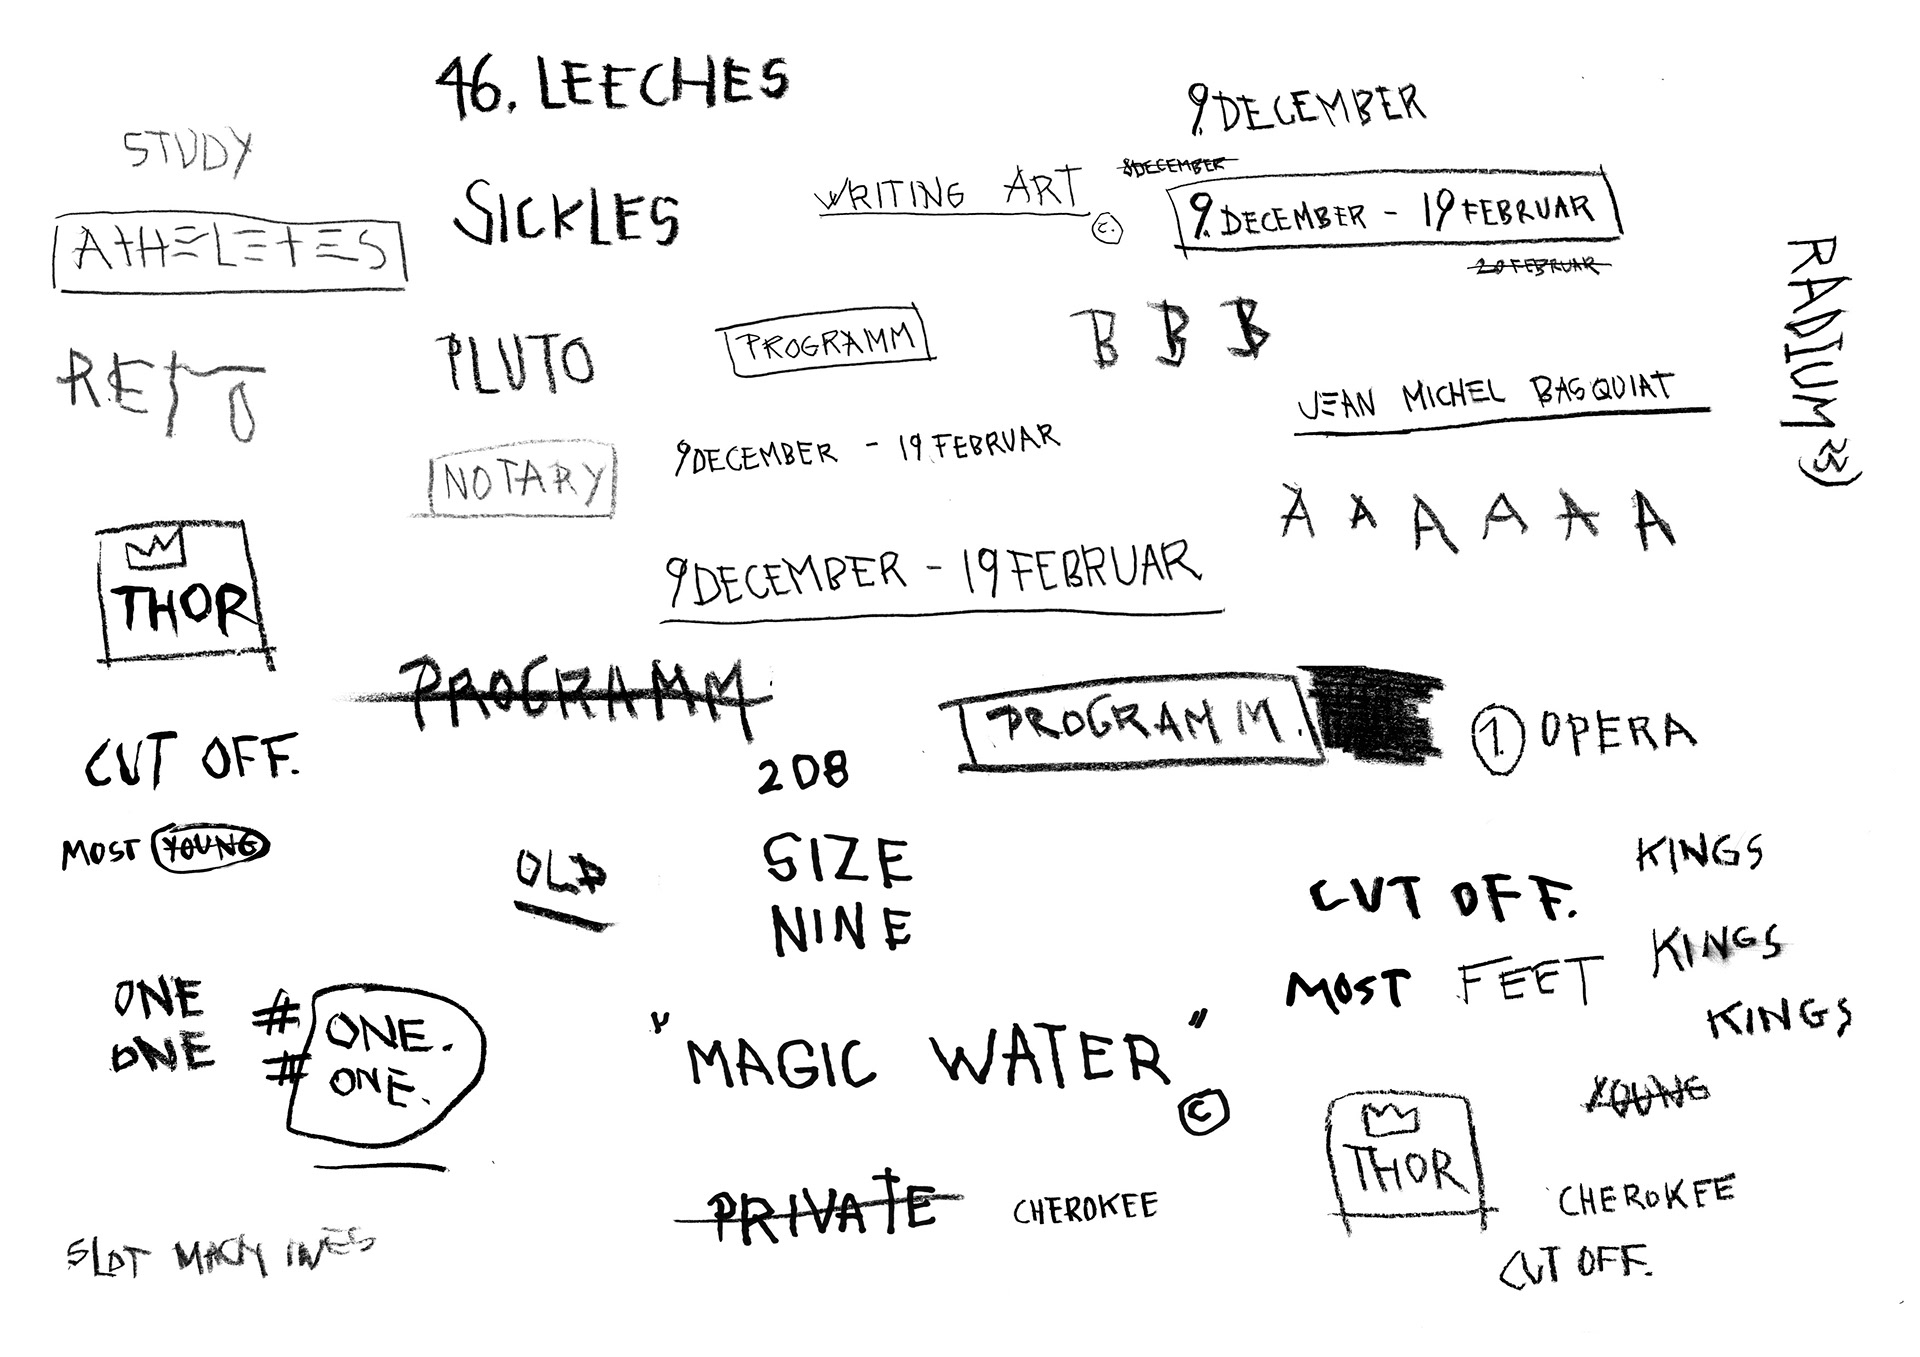 46. LEECHES
9. DECEMBER
STUDY
8 DECEMBER
WRITING ART
C.
SICKLES
9. DECEMBER - 19 FEBRUAR
ATHELETES
20 FEBRUAR
RADIUM 23)
B B B
PROGRAMM
PLUTO
RETO
JEAN MICHEL BASQUIAT
9 DECEMBER - 19 FEBRUAR
NOTARY
A A A A A A
THOR
9 DECEMBER - 19 FEBRUAR
PROGRAMM
PROGRAMM.
1. OPERA
CUT OFF.
2D8
MOST YOUNG
OLD
SIZE
NINE
KINGS
CUT OFF.
KINGS
MOST FEET
KINGS
ONE # ONE.
ONE # ONE.
"MAGIC WATER"
©
YOUNG
THOR
PRIVATE
CHEROKEE
CHEROKEE
SLOT MACHINES
CUT OFF.